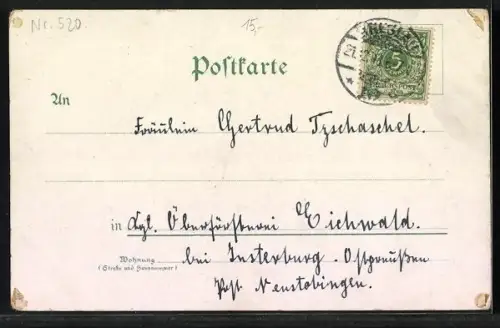 Nr. 520
15,-
Postkarte
5
An
Fräulein Gertrud Tzschaschel.
in Kgl. Oberförsterei Eichwald.
Wohnung
(Straße und Hausnummer)
bei Insterburg. Ostpreußen
Post Neunobingen.